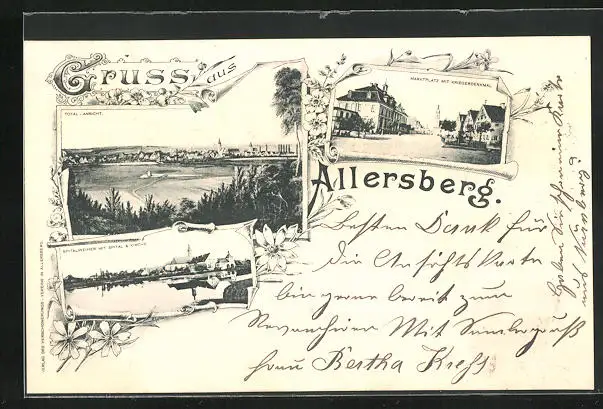 Gruss aus
TOTAL-ANSICHT.
MARKTPLATZ MIT KRIEGERDENKMAL
Allersberg.
SPITALWEIHER MIT SPITAL & KIRCHE
Besten Dank für
die Ansichtskarte
bin gerne bereit zum
Revanchieren Mit Sammlergruß
Frau Bertha Kreß
VERLAG DES VERSCHÖNERUNGS-VEREINS IN ALLERSBERG.